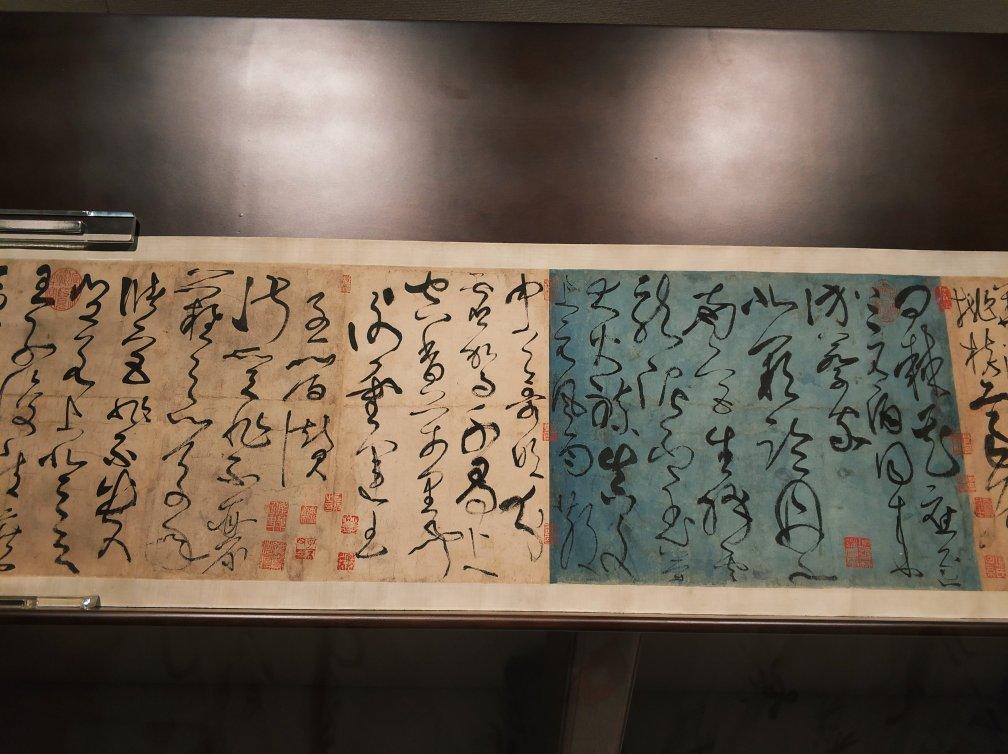 桃核齊侯
問棗花應逐上
元酒同來
訪蔡家
北闕臨丹水
南宮生絳雲
龍泥印玉策
大火煉真文
上元風雨散
中天哥吹分
虛駕千尋上
空香萬里聞
謝靈運王
子晉贊
淑質非不麗
難之以萬年
儲宮非不貴
豈若上登天
王子復清曠